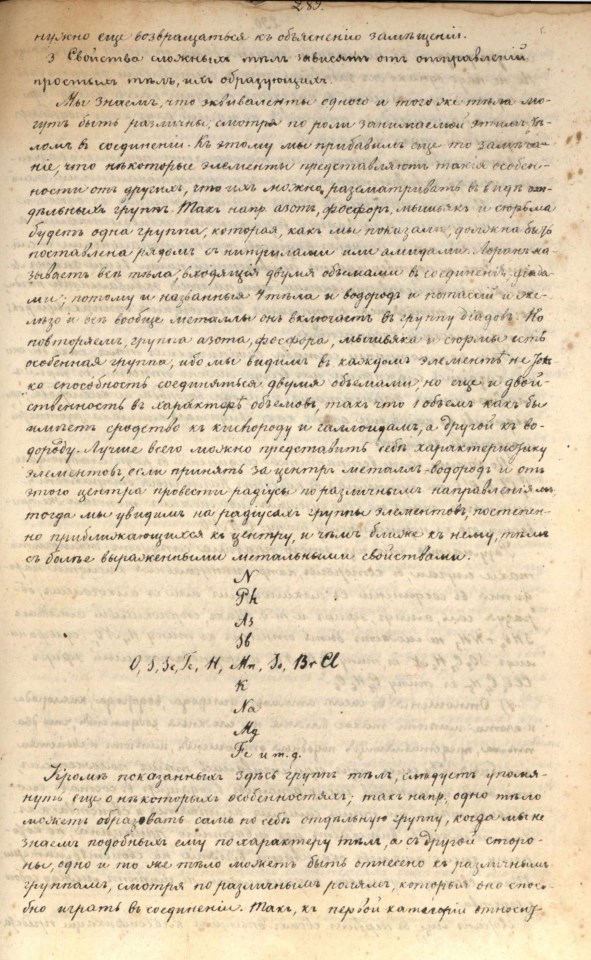 289.
нужно еще возвращаться къ объясненію замѣщеній.
3 Свойства сложныхъ тѣлъ зависятъ отъ отправленій
простыхъ тѣлъ, ихъ образующихъ.
Мы знаемъ, что эквиваленты одного и того же тѣла мо-
гутъ быть различны, смотря по роли занимаемой этимъ тѣ-
ломъ въ соединеніи. Къ этому мы прибавимъ еще то замѣча-
ніе, что нѣкоторые элементы представляютъ такія особен-
ности отъ другихъ, что ихъ можно разсматривать въ видѣ от-
дѣльныхъ группъ. Такъ напр. азотъ, фосфоръ, мышьякъ и сюрьма
будетъ одна группа, которая, какъ мы показали, должна быть
поставлена рядомъ съ нитрилами или амидами. Лоранъ на-
зываетъ всѣ тѣла, входящія двумя объемами въ соединенія, діада-
ми; потому и названныя 4 тѣла и водородъ и потассій и же-
лѣзо и всѣ вообще металлы онъ включаетъ въ группу діадовъ. Но
повторяемъ, группа азота, фосфора, мышьяка и сюрмы есть
особенная группа, ибо мы видимъ въ каждомъ элементѣ не толь-
ко способность соединяться двумя объемами, но еще и двой-
ственность въ характерѣ объемовъ, такъ что 1 объемъ какъ бы
имѣетъ сродство къ кислороду и галлоидамъ, а другой къ во-
дороду. Лучше всего можно представить себѣ характеристику
элементовъ, если принять за центръ металлъ-водородъ и отъ
этого центра провести радіусы по различнымъ направленіямъ,
тогда мы увидимъ на радіусахъ группы элементовъ, постепен-
но приближающихся къ центру, и чѣмъ ближе къ нему, тѣмъ
съ болѣе выраженными метальными свойствами.
N
Ph
As
Sb
O, S, Se, Te, H, Mn, Jo, Br Cl
K
Na
Mg
Fe и т.д.
Кромѣ показанныхъ здѣсь группъ тѣлъ, слѣдуетъ упомя-
нуть еще о нѣкоторыхъ особенностяхъ; такъ напр. одно тѣло
можетъ образовать само по себѣ отдѣльную группу, когда мы не
знаемъ подобныхъ ему по характеру тѣлъ, а съ другой сторо-
ны, одно и то же тѣло можетъ быть отнесено къ различнымъ
группамъ, смотря по различнымъ ролямъ, которыя оно спосо-
бно играть въ соединеніи. Такъ, къ первой категоріи относит-